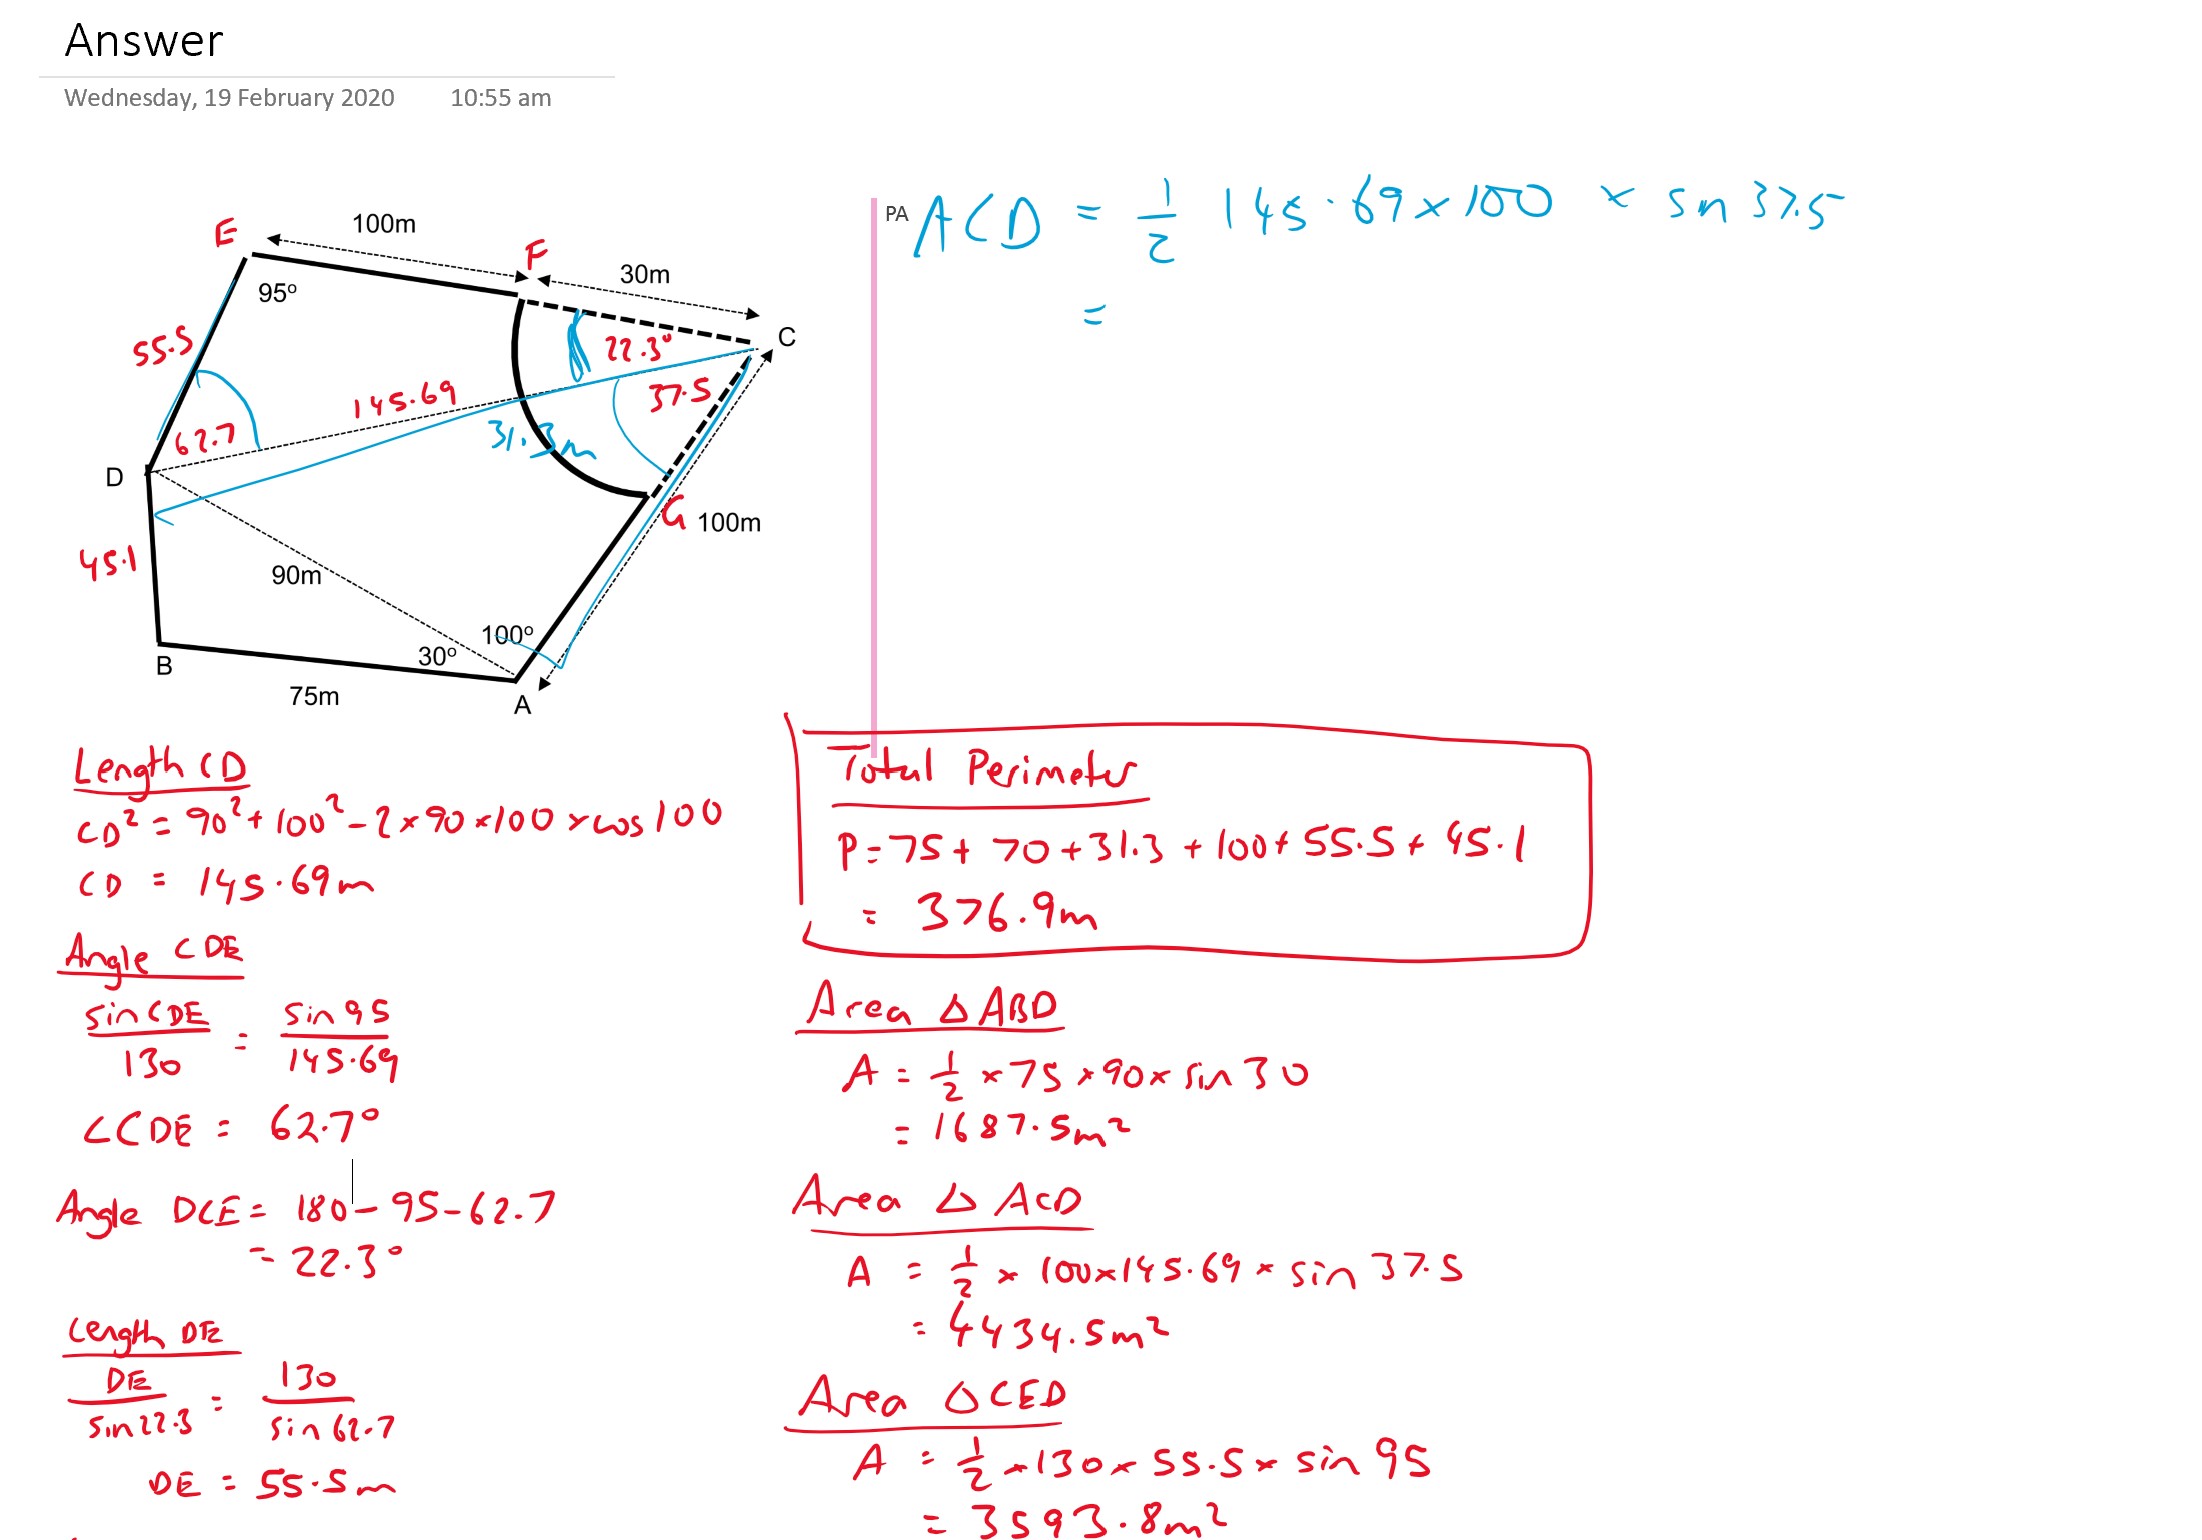 Answer
Wednesday, 19 February 2020 10:55 am
E
100m
F
30m
95º
C
55.5
22.3°
145.69
37.5
31.3m
62.7
D
G
100m
45.1
90m
100º
30º
B
75m
A
PA
ACD = 1/2 145.69 × 100 × sin 37.5
=
Length CD
CD² = 90² + 100² - 2 × 90 × 100 × cos 100
CD = 145.69m
Angle CDE
sin CDE / 130 = sin 95 / 145.69
∠CDE = 62.7°
Angle DCE = 180 - 95 - 62.7
= 22.3°
Length DE
DE / sin 22.3 = 130 / sin 62.7
DE = 55.5m
Total Perimeter
P = 75 + 70 + 31.3 + 100 + 55.5 + 45.1
= 376.9m
Area △ ABD
A = 1/2 × 75 × 90 × sin 30
= 1687.5m²
Area △ ACD
A = 1/2 × 100 × 145.69 × sin 37.5
= 4434.5m²
Area △ CED
A = 1/2 × 130 × 55.5 × sin 95
= 3593.8m²